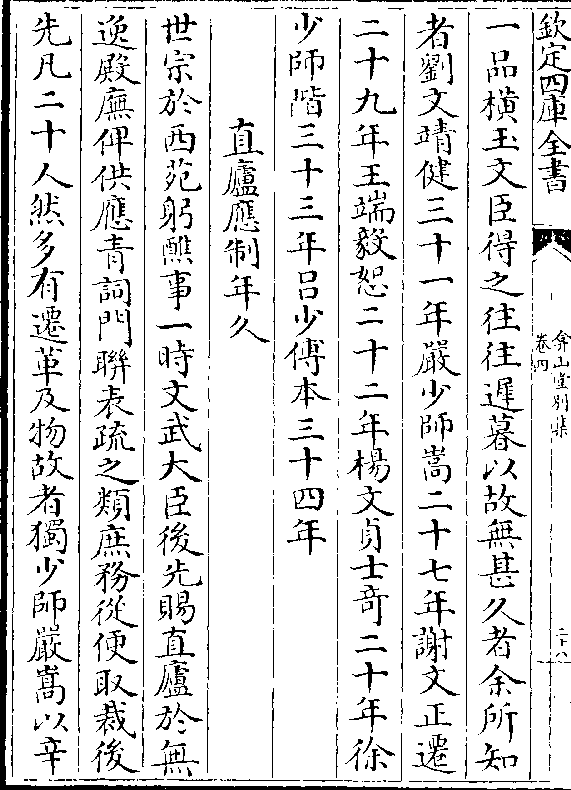 欽定四庫全書
弇山堂別集
卷四
二十八
一品橫玉文臣得之往往遲暮以故無甚久者余所知
者劉文靖健三十一年嚴少師嵩二十七年謝文正遷
二十九年王端毅恕二十二年楊文貞士奇二十年徐
少師階三十三年呂少傅本三十四年
直廬應制年久
世宗於西苑躬醮事一時文武大臣後先賜直廬於無
逸殿廡俾供應青詞門聯表疏之類庶務從便取裁後
先凡二十人然多有遷革及物故者獨少師嚴嵩以辛